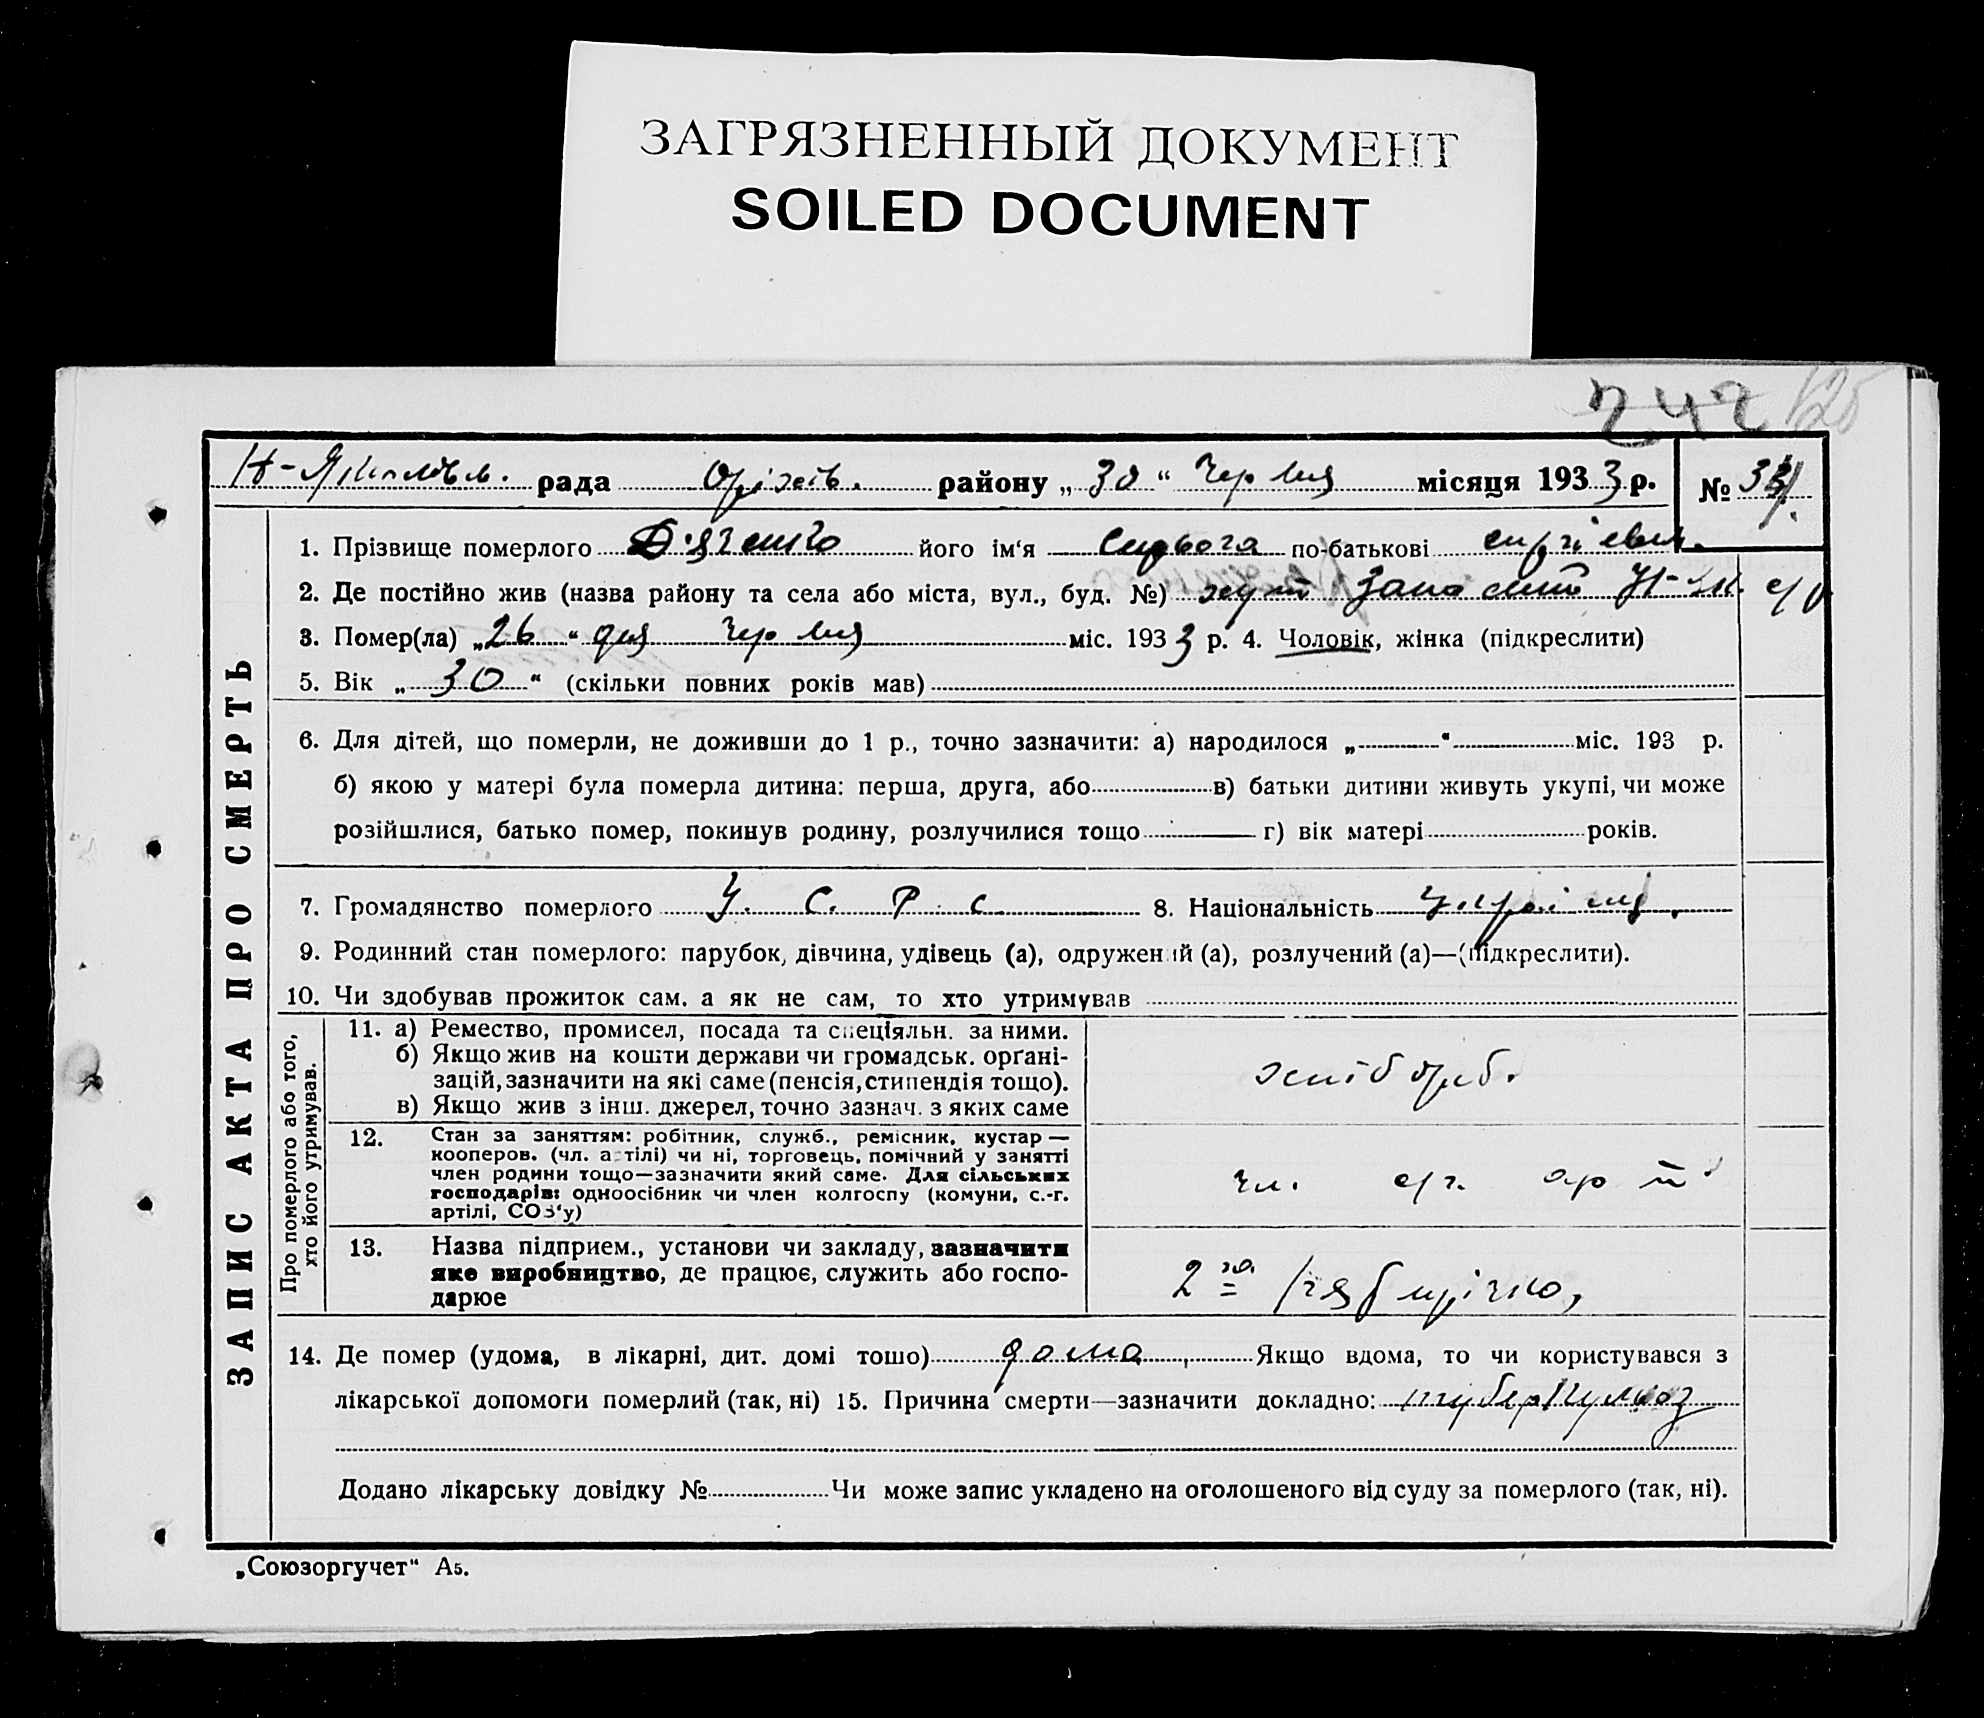 ЗАГРЯЗНЕННЫЙ ДОКУМЕНТ
SOILED DOCUMENT
242
рада Оріхів. району „30“ Червня місяця 1933 р. №
1. Прізвище померлого Дяченко його ім'я по-батькові
2. Де постійно жив (назва району та села або міста, вул., буд. №) хут
3. Помер(ла) „26“ дня Червня міс. 1933 р. 4. Чоловік, жінка (підкреслити)
5. Вік „30“ (скільки повних років мав)
6. Для дітей, що померли, не доживши до 1 р., точно зазначити: а) народилося „ “ міс. 193 р.
б) якою у матері була померла дитина: перша, друга, або в) батьки дитини живуть укупі, чи може
розійшлися, батько помер, покинув родину, розлучилися тощо г) вік матері років.
7. Громадянство померлого У. С. Р. С. 8. Національність
9. Родинний стан померлого: парубок, дівчина, удівець (а), одружений (а), розлучений (а)—(підкреслити).
10. Чи здобував прожиток сам, а як не сам, то хто утримував
ЗАПИС АКТА ПРО СМЕРТЬ
Про померлого або того,
хто його утримував.
11. а) Ремество, промисел, посада та спеціяльн. за ними.
б) Якщо жив на кошти держави чи громадськ. орґані-
зацій, зазначити на які саме (пенсія, стипендія тощо).
в) Якщо жив з інш. джерел, точно зазнач. з яких саме
хлібороб.
12. Стан за заняттям: робітник, служб., ремісник, кустар —
кооперов. (чл. артілі) чи ні, торговець, помічний у занятті
член родини тощо—зазначити який саме. Для сільських
господарів: одноосібник чи член колгоспу (комуни, с.-г.
артілі, СОЗ'у)
чл. с/г. арт
13. Назва підприєм., установи чи закладу, зазначити
яке виробництво, де працює, служить або госпо-
дарює
14. Де помер (удома, в лікарні, дит. домі тощо) дома Якщо вдома, то чи користувався з
лікарської допомоги померлий (так, ні) 15. Причина смерти—зазначити докладно: туберкульоз
Додано лікарську довідку № Чи може запис укладено на оголошеного від суду за померлого (так, ні).
„Союзоргучет“ А5.